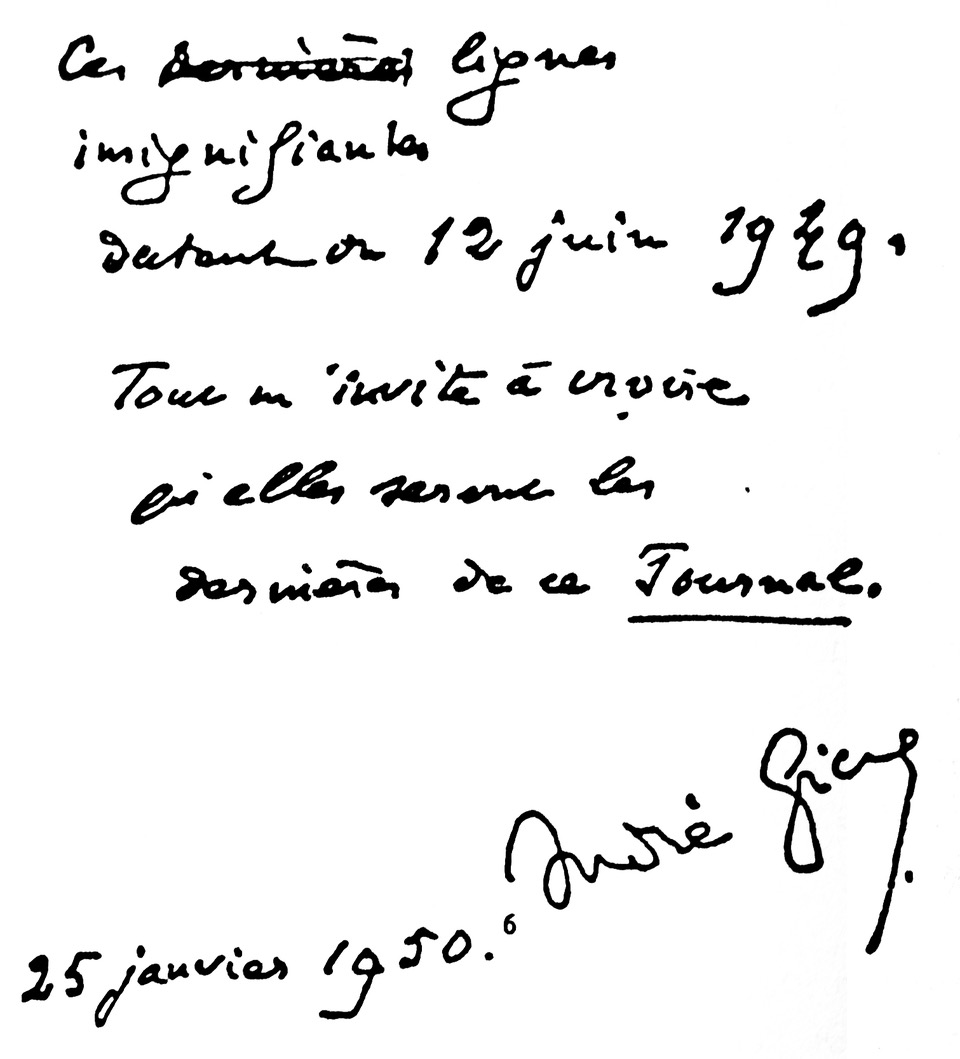 Ces dernières lignes
insignifiantes
datent du 12 juin 1949.
Tout m'invite à croire
qu'elles seront les
dernières de ce Journal.
André Gide
25 janvier 1950.⁶